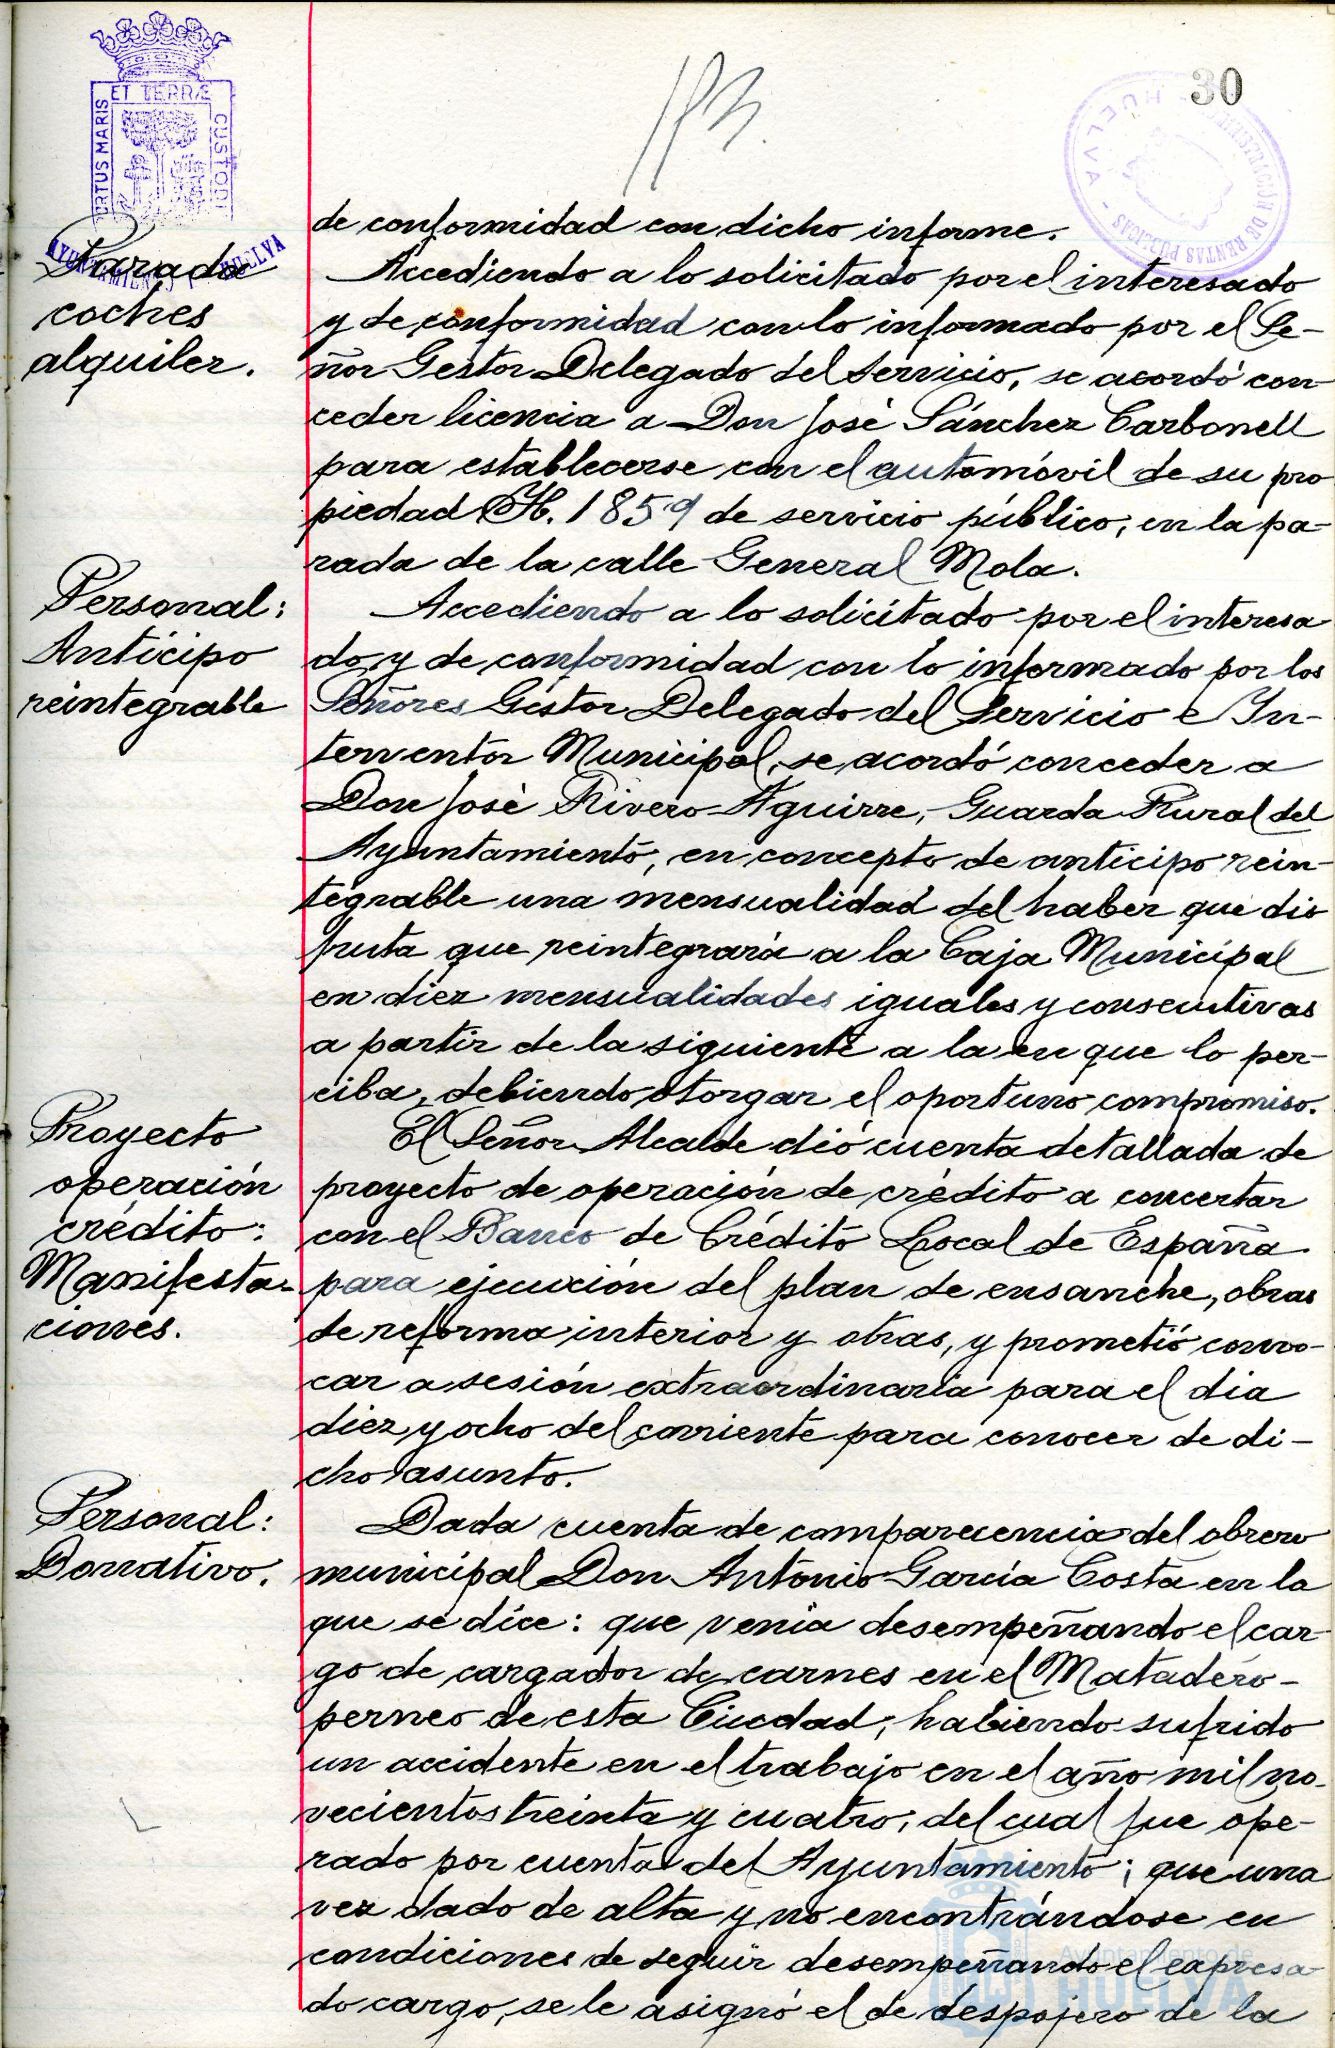 30
113.
PORTUS MARIS
ET TERRÆ
CUSTODI
AYUNTAMIENTO
HUELVA
RENTAS PUBLICAS - HUELVA
de conformidad con dicho informe.
Parada
coches
alquiler.
Accediendo a lo solicitado por el interesado
y de conformidad con lo informado por el Se-
ñor Gestor Delegado del Servicio, se acordó con-
ceder licencia a Don José Sánchez Carbonell
para establecerse con el automóvil de su pro
piedad H. 1859 de servicio público, en la pa-
rada de la calle General Mola.
Personal:
Anticipo
reintegrable
Accediendo a lo solicitado por el interesa
do y de conformidad con lo informado por los
Señores Gestor Delegado del Servicio e In-
terventor Municipal, se acordó conceder a
Don José Rivero Aguirre, Guarda Rural del
Ayuntamiento, en concepto de anticipo rein-
tegrable una mensualidad del haber que dis
fruta que reintegrará a la Caja Municipal
en diez mensualidades iguales y consecutivas
a partir de la siguiente a la en que lo per-
ciba, debiendo otorgar el oportuno compromiso.
Proyecto
operación
crédito:
Manifesta-
ciones.
El Señor Alcalde dió cuenta detallada de
proyecto de operación de crédito a concertar
con el Banco de Crédito Local de España
para ejecución del plan de ensanche, obras
de reforma interior y otras, y prometió convo-
car a sesión extraordinaria para el dia
diez y ocho del corriente para conocer de di-
cho asunto.
Personal:
Donativo.
Dada cuenta de comparecencia del obrero
municipal Don Antonio García Costa en la
que se dice: que venia desempeñando el car-
go de cargador de carnes en el Matadero-
perneo de esta Ciudad, habiendo sufrido
un accidente en el trabajo en el año mil no-
vecientos treinta y cuatro, del cual fue ope-
rado por cuenta del Ayuntamiento; que una
vez dado de alta y no encontrándose en
condiciones de seguir desempeñando el expresa-
do cargo, se le asignó el de despojero de la
Ayuntamiento de
HUELVA